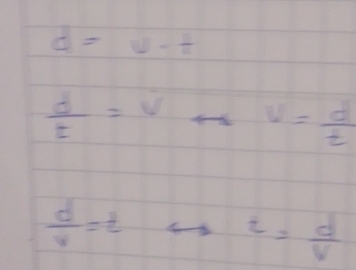 d = v · t
d/t = v ↔ v = d/t
d/v = t ↔ t = d/v